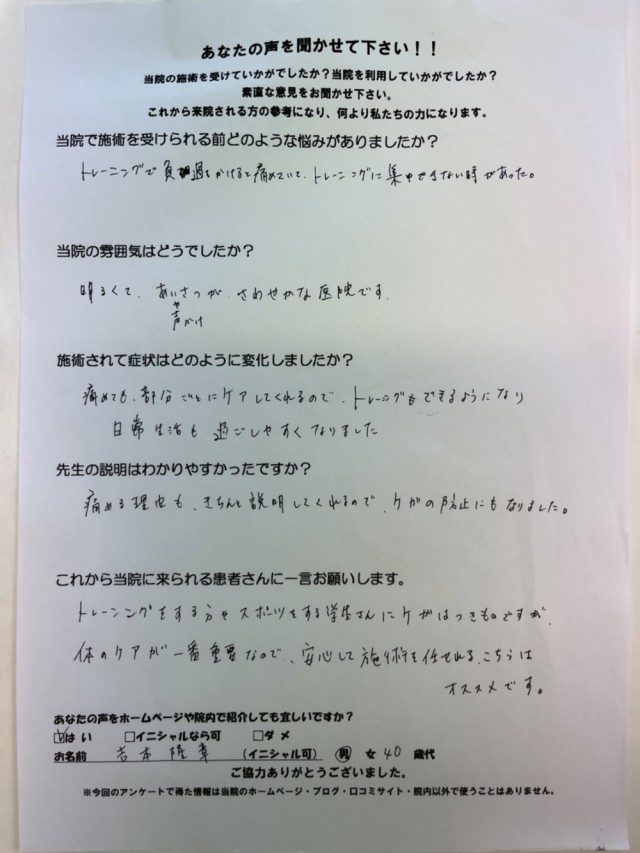 あなたの声を聞かせて下さい！！
当院の施術を受けていかがでしたか？当院を利用していかがでしたか？
素直な意見をお聞かせ下さい。
これから来院される方の参考になり、何より私たちの力になります。
当院で施術を受けられる前どのような悩みがありましたか？
トレーニングで負過をかけると痛めていて、トレーニングに集中できない時があった。
当院の雰囲気はどうでしたか？
明るくて、あいさつが、さわやかな医院です。
や声がけ
施術されて症状はどのように変化しましたか？
痛めても、部分ごとにケアしてくれるので、トレーニングもできるようになり
日常生活も過ごしやすくなりました
先生の説明はわかりやすかったですか？
痛める理由も、きちんと説明してくれるので、ケガの防止にもなりました。
これから当院に来られる患者さんに一言お願いします。
トレーニングをする方やスポーツをする学生さんにケガはつきものですが、
体のケアが一番重要なので、安心して施術を任せれる、こちらは
オススメです。
あなたの声をホームページや院内で紹介しても宜しいですか？
☑はい　□イニシャルなら可　□ダメ
お名前　吉本隆幸　（イニシャル可）　男　女　40　歳代
ご協力ありがとうございました。
※今回のアンケートで得た情報は当院のホームページ・ブログ・口コミサイト・院内以外で使うことはありません。